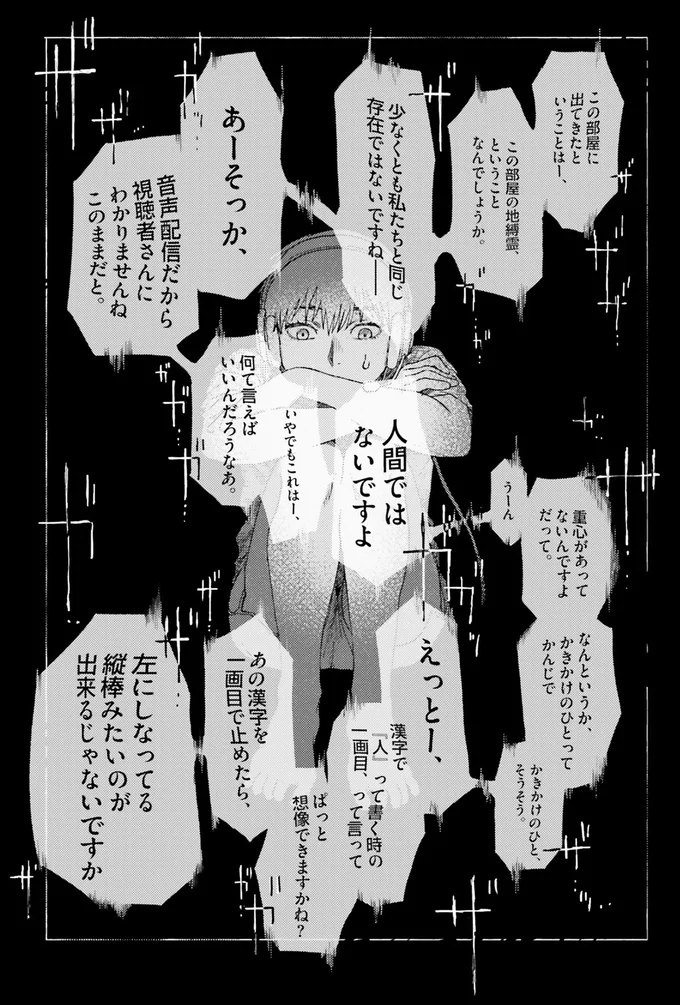 この部屋に
出てきたと
いうことはー、
この部屋の地縛霊、
ということ
なんでしょうか。
少なくとも私たちと同じ
存在ではないですね──
あーそっか、
音声配信だから
視聴者さんに
わかりませんね
このままだと。
何て言えば
いいんだろうなあ。
いやでもこれはー、
人間では
ないですよ
うーん
重心があって
ないんですよ
だって。
なんというか、
かきかけのひとって
かんじで
かきかけのひと、
そうそう。
えっとー、
漢字で
『人』って書く時の
一画目、って言って
ぱっと
想像できますかね?
あの漢字を
一画目で止めたら、
左にしなってる
縦棒みたいのが
出来るじゃないですか